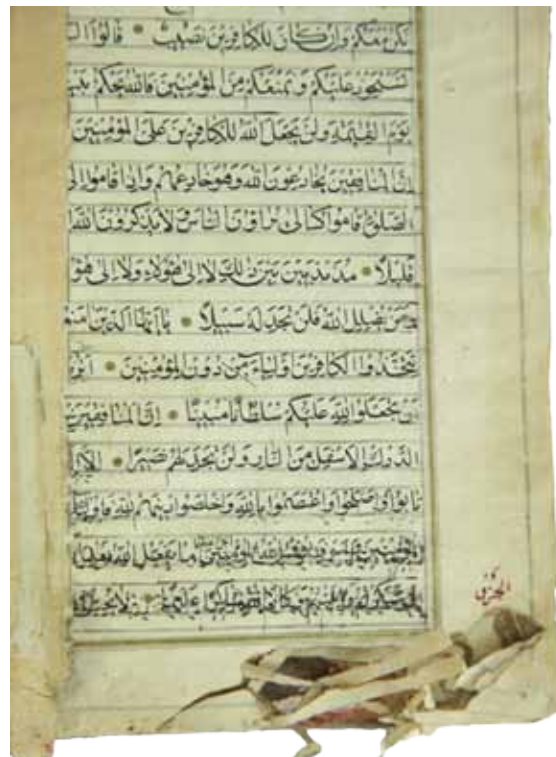 نكن معكم وان كان للكافرين نصيب قالوا الم
نستحوذ عليكم ونمنعكم من المؤمنين فالله يحكم بين
يوم القيمة ولن يجعل الله للكافرين على المؤمنين
ان المنافقين يخادعون الله وهو خادعهم واذا قاموا الى
الصلوة قاموا كسالى يراؤن الناس ولا يذكرون الله
قليلا مذبذبين بين ذلك لا الى هؤلاء ولا الى هؤ
ومن يضلل الله فلن تجد له سبيلا يا ايها الذين امنو
تتخذوا الكافرين اولياء من دون المؤمنين اتر
تجعلوا الله عليكم سلطانا مبينا ان المنافقين
الدرك الاسفل من النار ولن تجد لهم نصيرا الا الذ
تابوا واصلحوا واعتصموا بالله واخلصوا دينهم لله فاولئك
المؤمنين وسوف الله المؤمنين ما يفعل الله
لا يحب
الجزء